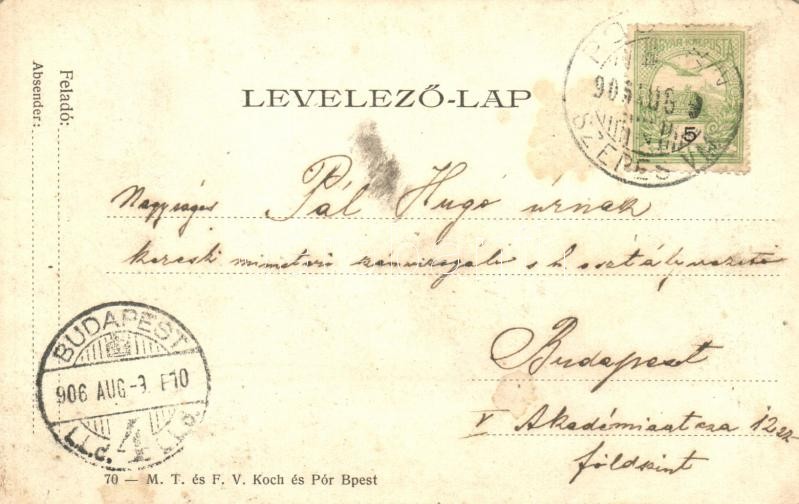 Feladó:
Absender:
LEVELEZŐ-LAP
MAGYAR KIR. POSTA
5
906 AUG
SZEPES VM
Nagyságos Pál Hugó úrnak
kereski ministeri számvizsgáló s h. osztályvezető
Budapest
V Akadémia utca 12 sz
földszint
BUDAPEST
906 AUG-9. E10
4
P.T.T.
70 — M. T. és F. V. Koch és Pór Bpest